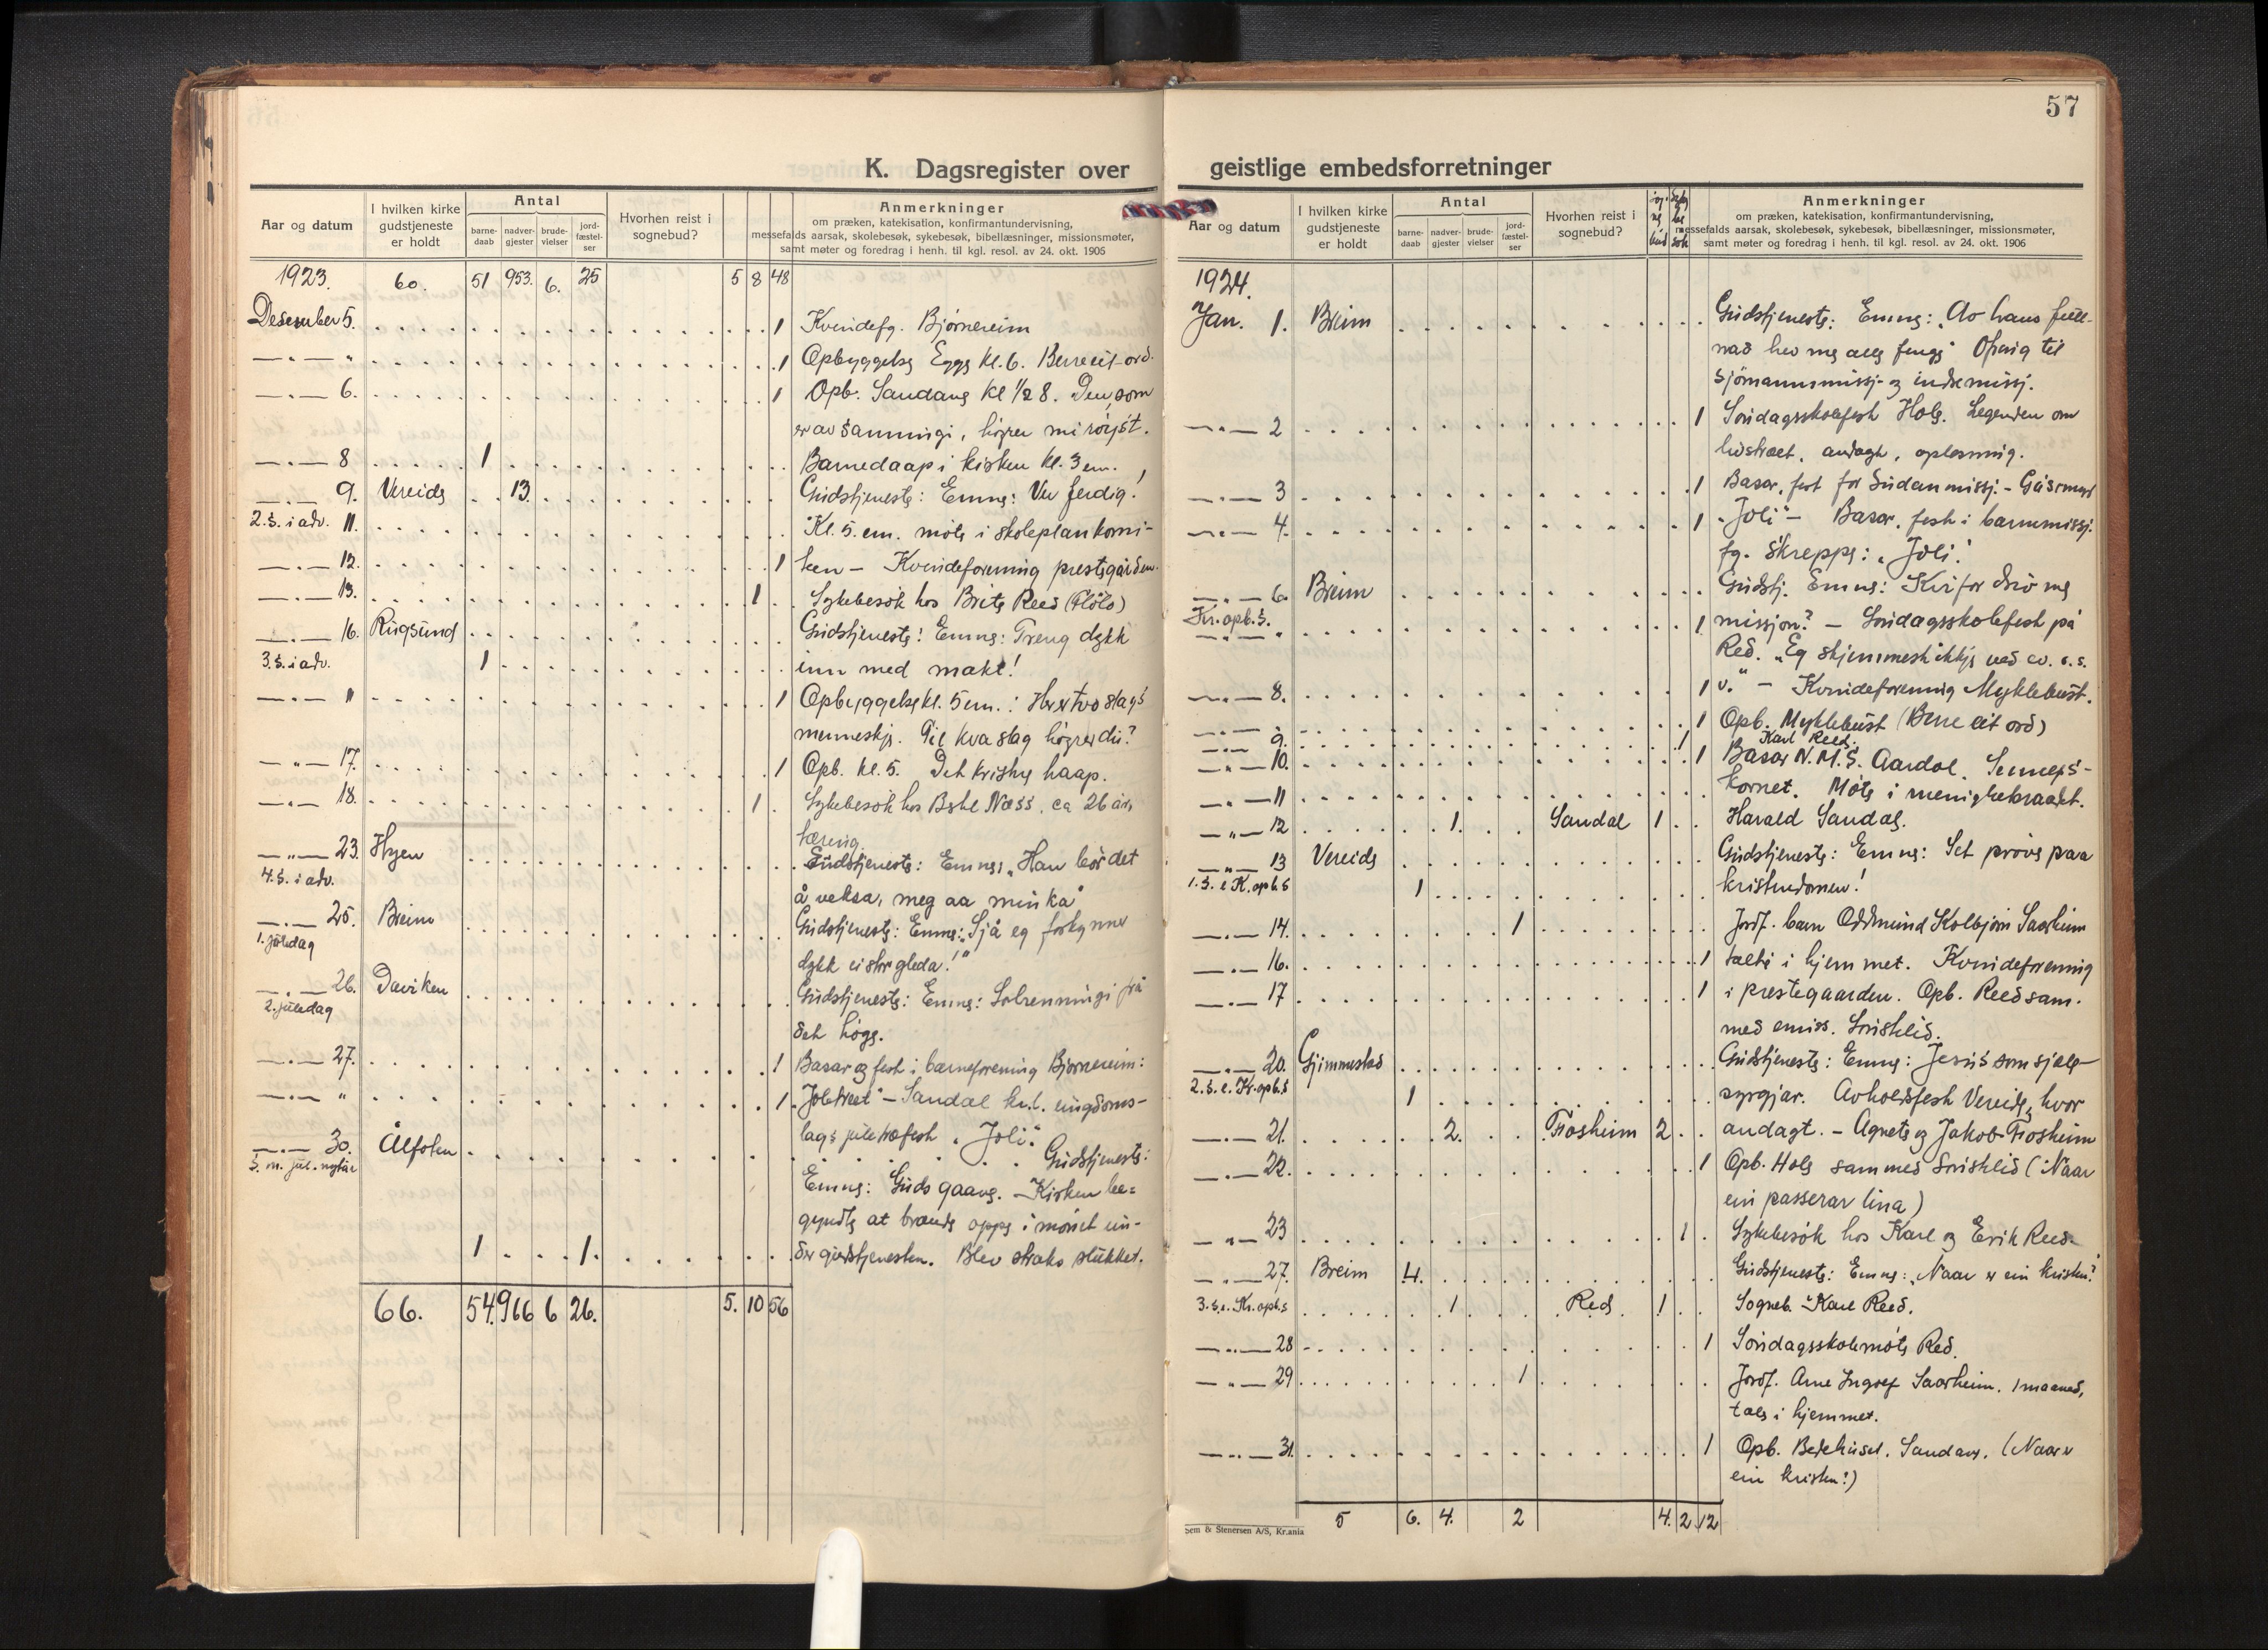 57
K. Dagsregister over
Aar og datum
I hvilken kirke gudstjeneste er holdt
Antal
barne-daab
nadver-gjester
brude-vielser
jord-fæstel-ser
Hvorhen reist i sognebud?
Anmerkninger
om præken, katekisation, konfirmantundervisning,
messefalds aarsak, skolebesøk, sykebesøk, bibellæsninger, missionsmøter,
samt møter og foredrag i henh. til kgl. resol. av 24. okt. 1906
1923. 60. 51 953. 6. 25 5 8 48
Desember 5. 1 Kvindefg. Bjørnereim
— " — " 1 Opbyggelse Egge kl. 6. Berre eit ord.
— " — 6. 1 Opb. Sandane kl 1/2 8. Den, som
er av sanningi, høyrer mi røyst.
— " — 8 1 Barnedaap i kirken kl. 3 em.
— " — 9. Vereide 13. Gudstjeneste: Emne: Ver ferdig!
2. s. i adv. 11. Kl. 5. em. møte i skoleplankomi-
— " — 12. 1 teen – Kvindeforening prestegården.
— " — 13. 1 Sykebesøk hos Brite Reed (Flølo)
— " — 16. Rugsund Gudstjeneste: Emne: Treng dykk
3. s. i adv. 1 inn med makt!
— " — " 1 Opbyggelse kl. 5 em.: Her er two slags
menneskje. Til kva slag høyrer du?
— " — 17. 1 Opb. kl. 5. Det kristne haap.
— " — 18. 1 Sykebesøk hos Næss, ca 26 år,
tæring.
— " — 23. Hyen Gudstjeneste: Emne: "Han bør det
4. s. i adv. å veksa, meg aa minka"
— " — 25. Breim Gudstjeneste: Emne: "Sjå eg forkynner
1. juledag dykk ei stor gleda!"
— " — 26. Daviken Gudstjeneste: Emne: Solrenningi frå
2. juledag det høge.
— " — 27. 1 Basar og fest i barneforening Bjørnereim:
— " — " 1 "Joletreet" – Sandal krl. ungdoms-
lags juletræfest. "Joli."
— " — 30. Ålfoten Gudstjeneste:
S. m. jul. nytår Emne: Guds gaave. – Kirken be-
gyndte at brænde oppe i mønet un-
1 1. der gudstjenesten. Blev straks slukket.
66. 54. 966 6 26. 5. 10 56
geistlige embedsforretninger
Aar og datum
I hvilken kirke gudstjeneste er holdt
Antal
barne-daab
nadver-gjester
brude-vielser
jord-fæstel-ser
Hvorhen reist i sognebud?
Anmerkninger
om præken, katekisation, konfirmantundervisning,
messefalds aarsak, skolebesøk, sykebesøk, bibellæsninger, missionsmøter,
samt møter og foredrag i henh. til kgl. resol. av 24. okt. 1906
1924.
Jan. 1. Breim Gudstjeneste: Emne: "Av hans full-
nad hev me alle fenge" Ofring til
sjømannsmissj- og indremissj.
— " — 2 1 Søndagsskolefest Hole. Legenden om
livstræet, andagt, oplesning.
— " — 3 1 Basar, fest for Sudanmissj. –
— " — 4. 1 "Joli" – Basar, fest i barnemissj.
fg. Skreppe: "Joli".
— " — 6. Breim Gudstj. Emne: Kvifor driv me
Kr. opb. S. 1 missjon? – Søndagsskolefest på
Red. "Eg skjemmest ikkje ved ev. o. s.
— " — 8. 1 v." – Kvindeforening Myklebust.
1 Opb. Myklebust (Berre eit ord)
— " — 9. 1 Karl Reed.
— " — 10. 1 Basar N.M.S. Aardal. Senneps-
— " — 11 kornet. Møte i menighetsraadet.
— " — 12 1. Sandal 1 Harald Sandal.
— " — 13 Vereide Gudstjeneste: Emne: Set prøve paa
1. S. e. K. opb.s 1 kristendomen!
— " — 14. 1 Jordf. barn Oddmund Kolbjørn Saarheim
— " — 16. 1 talte i hjemmet. Kvindeforening
— " — 17 1 i prestegaarden. Opb. Reed sam.
med emiss. Sørishlid.
— " — 20. Gjimmestad Gudstjeneste: Emne: Jesus som sjæle-
2. S. e. Kr. opb.s 1 syrgjar. Avholdsfest Vereide, hvor
— " — 21. 2. Fosheim 2 andagt. – Agnete og Jakob Fosheim
— " — 22. 1 Opb. Hole sam med Sørishlid (Naar
ein passerar lina)
— " — 23 1 Sykebesøk hos Karl og Erik Reed.
— " — 27. Breim 4. Gudstjeneste: Emne: "Naar er ein kristen?"
3. S. e. Kr. opb.s 1 Red. 1 Sogneb. Karl Reed.
— " — 28 1 Søndagsskolemøte Red.
— " — 29 1 Jordf. Arne Ingolf Saarheim. 1 maaned,
tale i hjemmet.
— " — 31. 1 Opb. Bedehuset. Sandane. (Naar er
ein kristen?)
5 6. 4. 2 4. 2 12
Sem & Stenersen A/S, Kr.ania